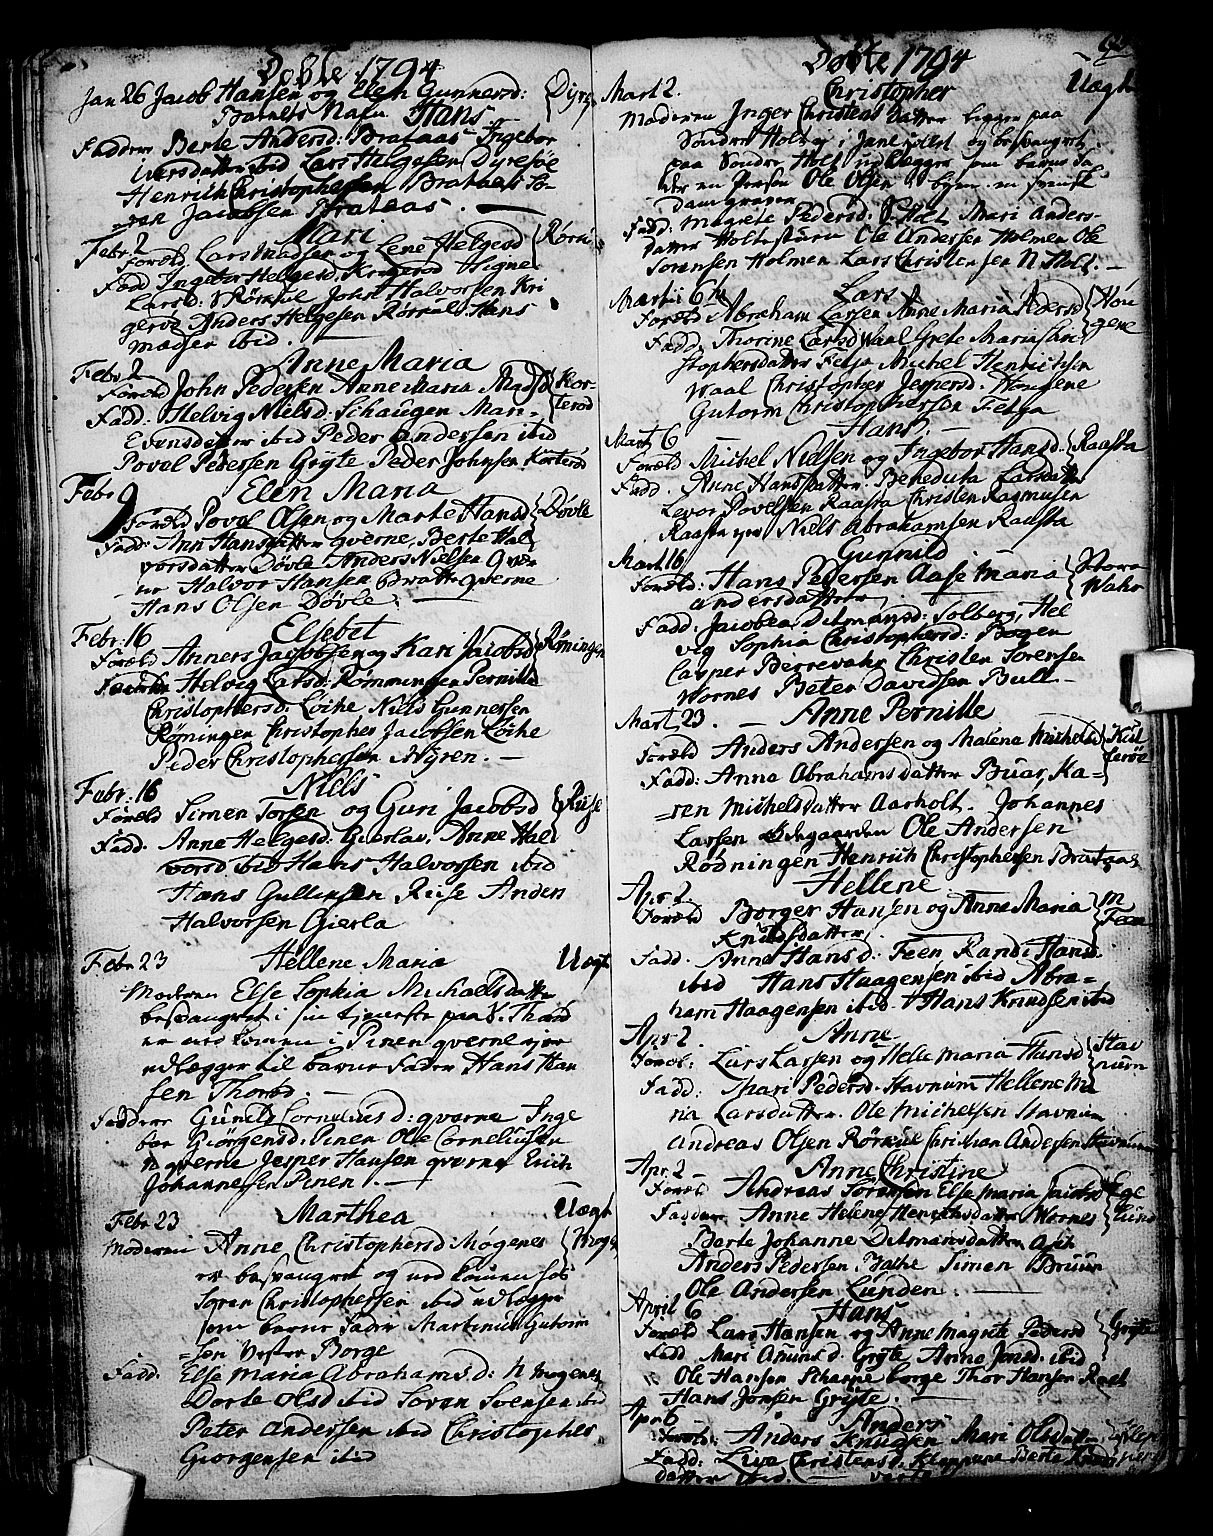 Døbte 1794
Jan 26 Jacob Hansen og Elen Gunnersd:
Barnets Nafn Hans
Faddere Berte Andersd: Brataas Ingebor
Iversdatter ibid Lars Helgesen Dyresöe
Henrich Christophersen Brataas Sö-
ren Jacobsen Brataas.
Mari
Febr 2
Foreld Lars Madsen og Lene Helgesd
Fadd Ingebor Helgesd. Signe
Larsd: Rörkul John Halvorsen Kri
gerød Anders Helgesen Rörkul Hans
Madsen ibid.
Anne Maria
Febr 2
Foreld John Pedersen Anne Maria Madsd Kor-
terød
Fadd: Helvig Nielsd: Schaugen Mari-
Evensdatter ibid Peder Andersen ibid
Povel Pedersen Gryte Peder Johnsen Korterød
Elen Maria
Febr 9
Foreld Povel Olsen og Marte Hansd Døvle
Fadd: Ann Hansdatter qverne, Berte Hal
vorsdatter Døvle Anders Nielsen Qver
ne Halvor Hansen Bratte qverne
Hans Olsen Døvle.
Elsebet
Febr: 16
Foreld Anners Jacobsen og Kari Jacobsd Rømningen
Faddere Helvig Larsd: Rømmingen Pernille
Christophersd: Löike Niels Gunnersen
Rømingen Christopher Jacobsen Löike
Peder Christophersen Myren.
Niels
Febr: 16
Foreld Simen Torsen og Guri Jacobsd Riise
Fadd: Anne Helgesd: Gierlav, Anne Hal
vorsd ibid Hans Halvorsen ibid
Hans Gullicksen Riise Anders
Halvorsen Gierla
Febr 23 Hellene Maria Uægt
Moderen Else Sophia Michaelsdatter
besvangret i sin tjeneste paa V. Thorød
er ned kommen i Pinen qverne
udlægger til barne Fader Hans Han
sen Thorød
Faddere Gunel Corneliusd: qverne Inge
bor Giörgensd: Pinen Ole Corneliusen
qverne Jesper Hansen qverne Erich
Johannesen Pinen.
Febr 23 Marthea Uægt
Moderen Anne Christophersd Møgenes
er besvangret og ned kommen hos
Sören Christophersen ibid udlægger
som barne Fader Martinus Gutorm
sen Vestre Borge
Fadd. Else Maria Abrahamsd: N Mogenes
Dorte Olsd ibid Soren Svensen ibid
Peter Andersen ibid Christopher
Giorgensen ibid
Døbte 1794
Mart 2. Christopher Uægte
Moderen Inger Christens datter ligger paa
Søndre Holt og besvangret
paa Søndre Holt udlægger som barne fa
der en Person Ole Olsen svensk
Fadd: Magrete Pedersd: Holt Mari Anders-
datter Ole Andersen Holmen Ole
Sorensen Holmen Lars Christensen N Holt.
Martii 6 Lars
Foreld Abraham Larsen Anne Maria Pedersd Hou
gene
Fadd: Thorine Larsd Waal Grete Maria Chri-
stophersdatter Feya Michel Henrichsen
Waal Christopher Jespersd. Hougene
Gutorm Christophersen Feya
Hans.
Mart 6
Foreld Michel Nielsen og Ingebor Hansd. Raasta
Fadd. Anne Hansdatter. Beneducta Larsdatter
Levor Povelsen Raasta Christen Rasmusen
Raasta Niels Abrahamsen Raasta
Gunnild
Mart 16
Foreld: Hans Pedersen Aase Maria Store
Wahr
Andersdatter
Fadd. Jacobea Ditmansd: Solberg, Hel
vig Sophia Christophersd: Bogen
Casper Berrevahr Christen Sorensen
Wornes Peter Davidsen Bull
Mart 23. Anne Pernille
Foreld Anders Andersen og Malena Michelsd
Fadd: Anna Abrahamsdatter Buar, Ka-
ren Michelsdatter Aarholt. Johannes
Larsen Ødegaarden Ole Andersen
Rødningen Henrich Christophersen Brataas
Hellene
Apr 2
Foreld Borger Hansen og Anne Maria m
Feen
Knudsdatter
Fadd. Anne Hansd: Feen Randi Hansd.
ibid Hans Haagensen ibid Abra-
ham Haagensen ibid Hans Knudsen ibid
Anne
Apr 2
Foreld: Lars Larsen og Helle Maria Hansd Stav
num
Fadd: Mari Pedersd. Stavnum Hellene Ma
ria Larsdatter. Ole Michelsen Stavnum
Andreas Olsen Rørkul Christian Andersen Stavnum
Apr. 2 Anne Christine
Foreld Andreas Sorensen Else Maria Jacobsd Ege
lund
Faddere Anne Helene Henrichsdatter Wornes
Berte Johanne Ditmansdatter Ask
Anders Pedersen Simen Bruun
Ole Andersen Lunden.
April 6 Hans
Foreld Lars Hansen og Anne Magrete Pedersd Gryte
Fadd Mari Amunsd. Gryte Anne Jonsd. ibid
Ole Hansen Scharpe borge Thor Hansen Roel
Hans Jonsen Gryte.
Apr 6 Anders
Foreld: Anders Knudsen Mari Olsdatter
Fadd: Live Christensd. Kleppene Berte
datter ibid.